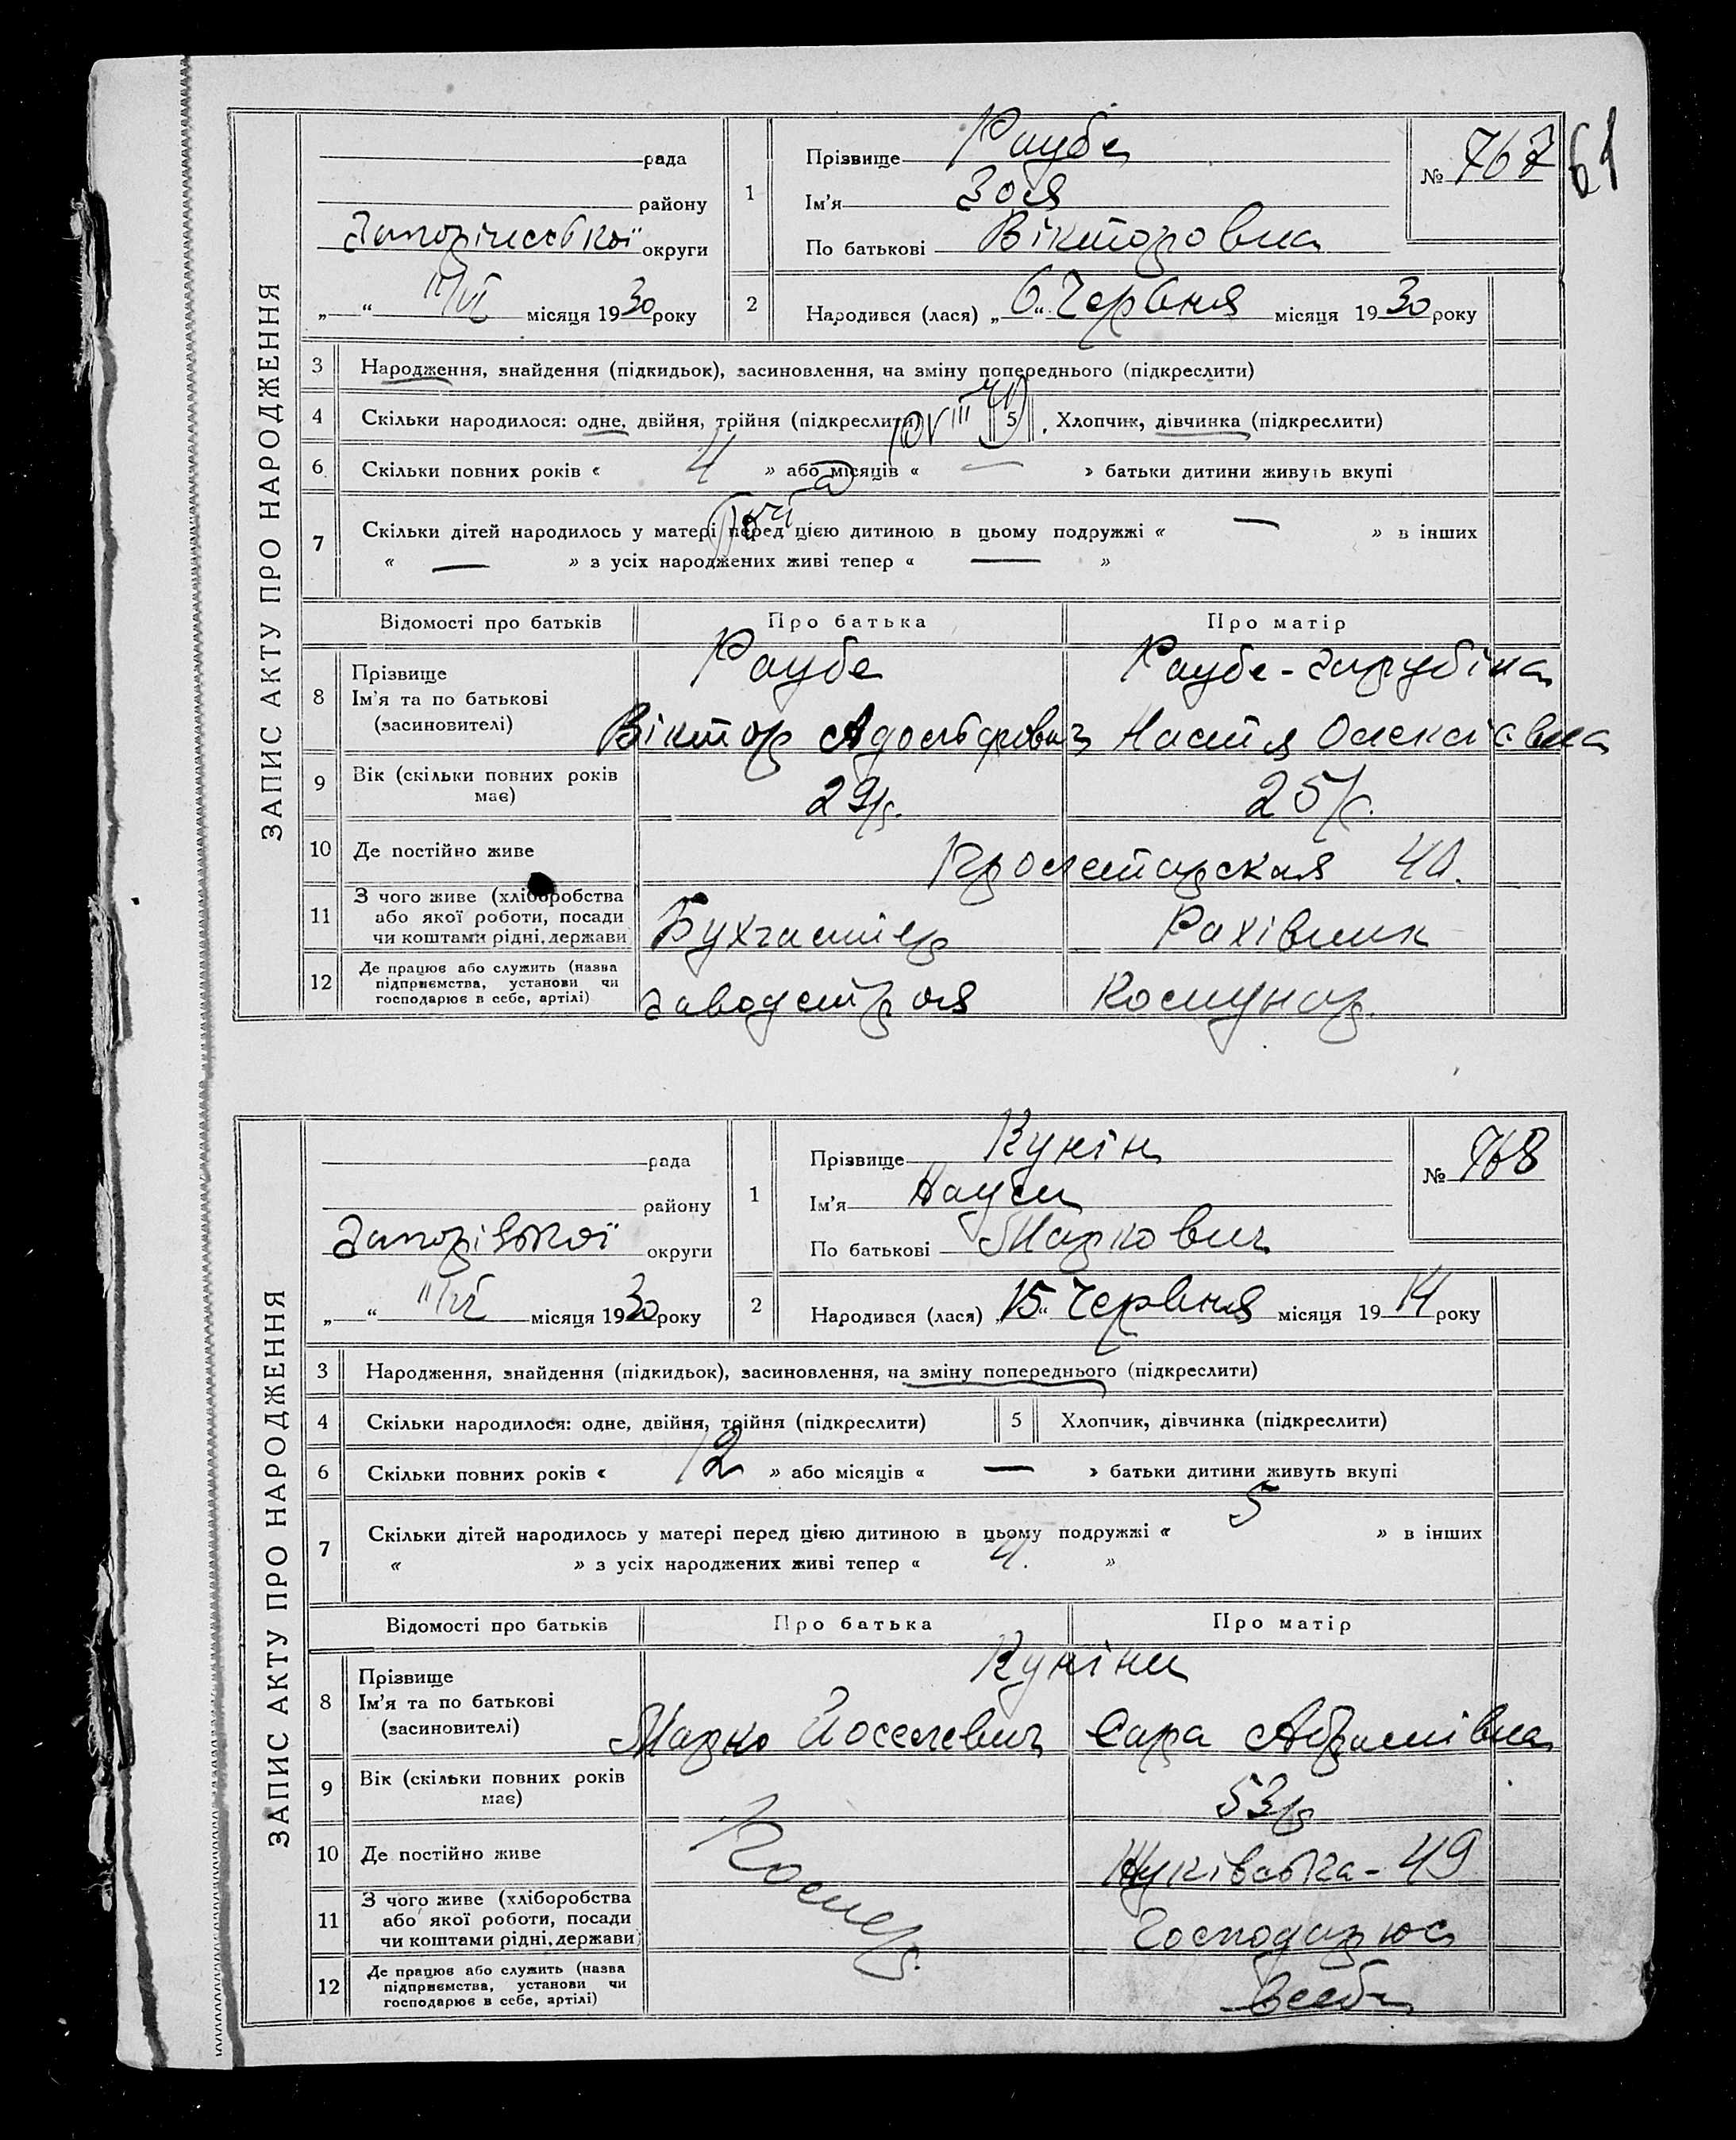 61
ЗАПИС АКТУ ПРО НАРОДЖЕННЯ
рада
району
округи
„ “ місяця 1930 року
1
Прізвище Раубе
Ім'я Зоя
По батькові Вікторовна
№ 767
2
Народився (лася) „6“ Червня місяця 1930 року
3 Народження, знайдення (підкидьок), засиновлення, на зміну попереднього (підкреслити)
4 Скільки народилося: одне, двійня, трійня (підкреслити) 5 Хлопчик, дівчинка (підкреслити)
6 Скільки повних років « 4 » або місяців « — » батьки дитини живуть вкупі
7 Скільки дітей народилось у матері перед цією дитиною в цьому подружжі « — » в інших
« — » з усіх народжених живі тепер « — »
Відомості про батьків Про батька Про матір
8 Прізвище
Ім'я та по батькові
(засновителі)
Раубе
Віктор Адольфович
Раубе-
Настя Олексієвна
9 Вік (скільки повних років має)
29 р. 25 р.
10 Де постійно живе
Пролетарская 40.
11 З чого живе (хліборобства
або якої роботи, посади
чи коштами рідні, держави
Бухгалтер Рахівник
12 Де працює або служить (назва
підприємства, установи чи
господарює в себе, артілі)
Заводстроя Комунар.
ЗАПИС АКТУ ПРО НАРОДЖЕННЯ
рада
району
Запорізької округи
„ “ 11/VI місяця 1930 року
1
Прізвище Кунін
Ім'я Наум
По батькові Маркович
№ 768
2
Народився (лася) „15“ Червня місяця 1914 року
3 Народження, знайдення (підкидьок), засиновлення, на зміну попереднього (підкреслити)
4 Скільки народилося: одне, двійня, трійня (підкреслити) 5 Хлопчик, дівчинка (підкреслити)
6 Скільки повних років « 12 » або місяців « — » батьки дитини живуть вкупі
7 Скільки дітей народилось у матері перед цією дитиною в цьому подружжі « 5 » в інших
« » з усіх народжених живі тепер « 4. »
Відомості про батьків Про батька Про матір
8 Прізвище
Ім'я та по батькові
(засиновителі)
Куніни
Марко Йоселевич Сара Абрамівна
9 Вік (скільки повних років має)
53 р
10 Де постійно живе
Жуківська - 49
11 З чого живе (хліборобства
або якої роботи, посади
чи коштами рідні, держави
Помер.
Господарює
12 Де працює або служить (назва
підприємства, установи чи
господарює в себе, артілі)
в себе